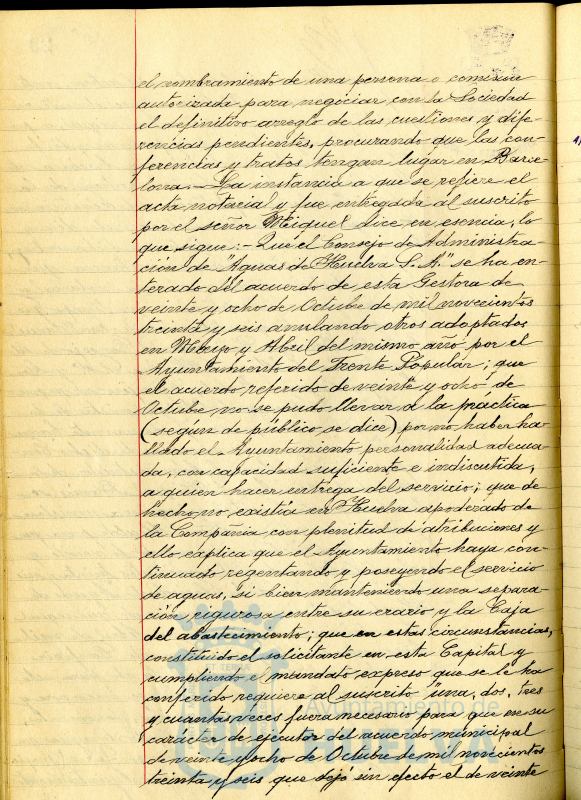 el nombramiento de una persona o comisión
autorizada para negociar con la Sociedad
el definitivo arreglo de las cuestiones y dife-
rencias pendientes, procurando que las con-
ferencias y tratos tengan lugar en Barce-
lona.- La instancia a que se refiere el
acta notarial y fue entregada al suscrito
por el señor Miquel dice en esencia, lo
que sigue:- Que el Consejo de Administra-
ción de "Aguas de Huelva S.A." se ha en-
terado del acuerdo de esta Gestora de
veinte y ocho de Octubre de mil novecientos
treinta y seis anulando otros adoptados
en Marzo y Abril del mismo año por el
Ayuntamiento del Frente Popular; que
el acuerdo referido de veinte y ocho de
Octubre no se pudo llevar a la práctica
(segun de público se dice) por no haber ha-
llado el Ayuntamiento personalidad adecua-
da, con capacidad suficiente e indiscutida,
a quien hacer entrega del servicio; que de
hecho no existía en Huelva apoderado de
la Compañia con plenitud de atribuciones y
ello explica que el Ayuntamiento haya con-
tinuado regentando y poseyendo el servicio
de aguas, si bien manteniendo una separa-
ción rigurosa entre su erario y la Caja
del abastecimiento; que en estas circunstancias,
constituido el solicitante en esta Capital y
cumpliendo el mandato expreso que se le ha
conferido requiere al suscrito "una, dos, tres
y cuantas veces fuera necesario para que en su
carácter de ejecutor del acuerdo municipal
de veinte y ocho de Octubre de mil novecientos
treinta y seis que dejó sin efecto el de veinte
Ayuntamiento de